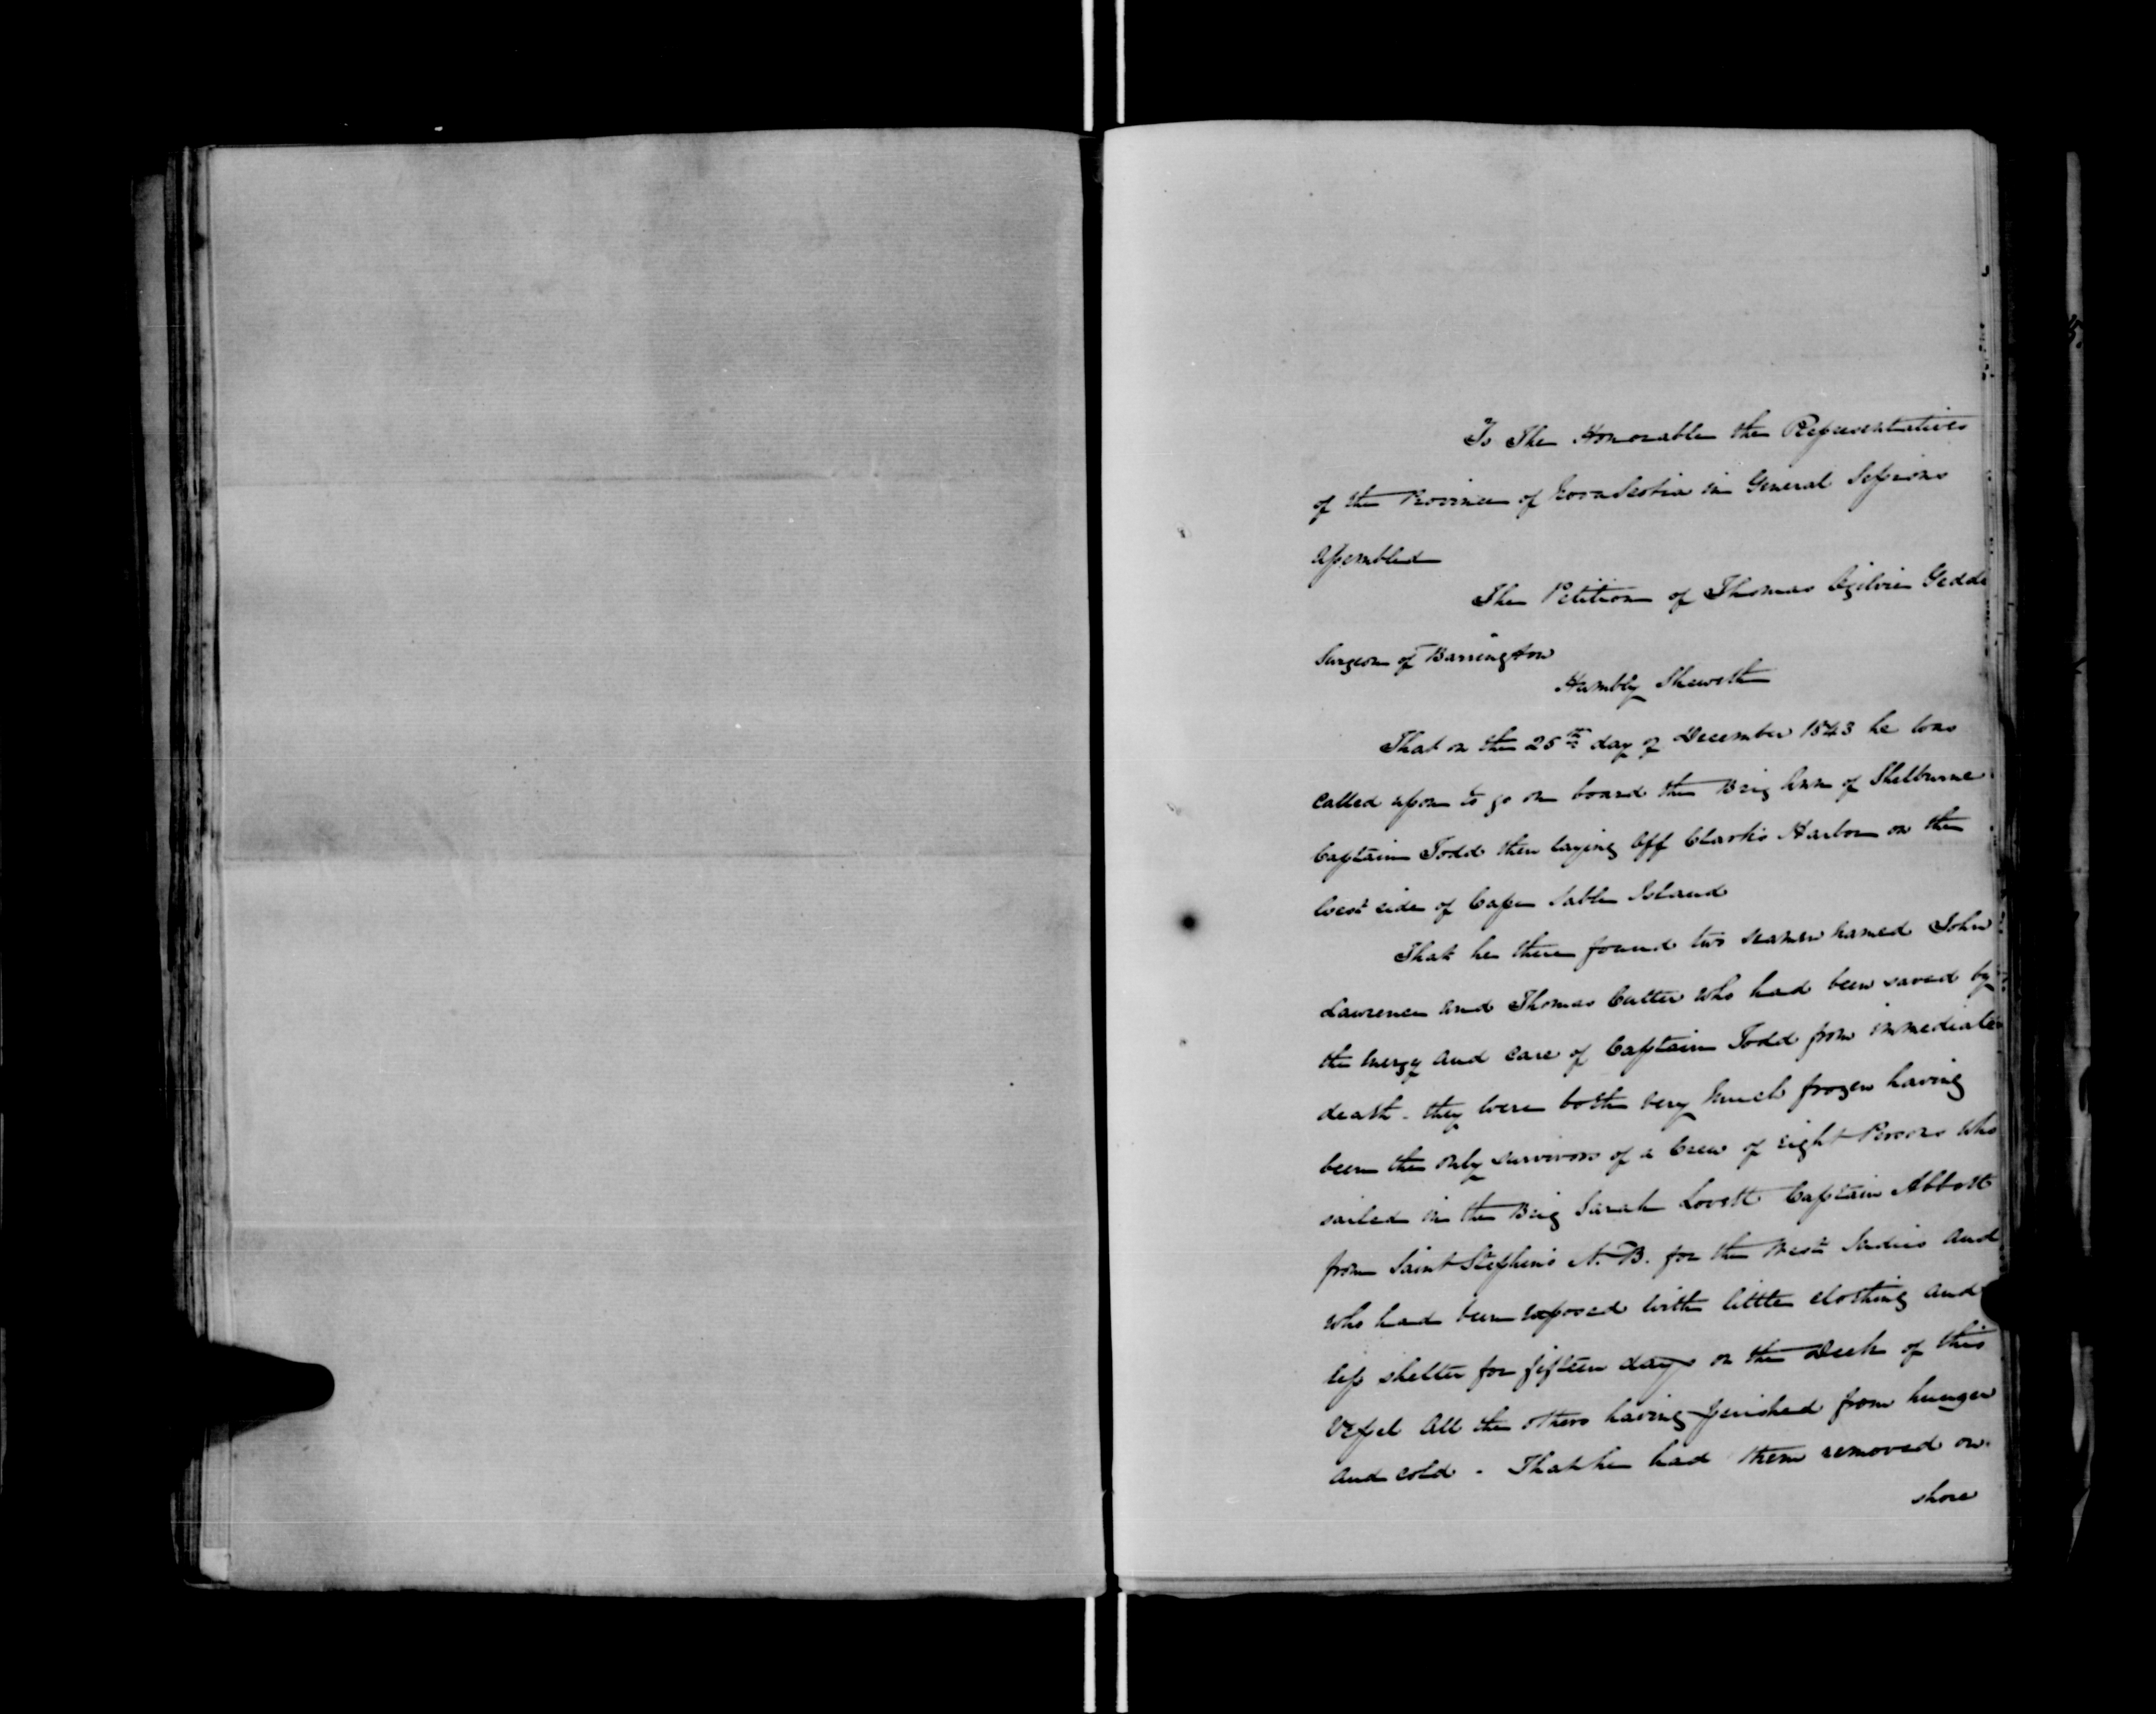 To The Honorable the Representatives
of the Province of Nova Scotia in General Sessions
assembled
The Petition of Thomas Ogilvie Gedde
Surgeon of Barrington
Humbly Sheweth
That on the 25th day of December 1843 he was
called upon to go on board the Brig Ann of Shelburne
Captain Todd then laying off Clark's Harbour on the
West side of Cape Sable Island
That he there found two seamen named John
Lawrence and Thomas Cutter who had been saved by
the energy and care of Captain Todd from immediate
death - they were both very much frozen having
been the only survivors of a Crew of eight Persons who
sailed in the Brig Sarah Lovett Captain Abbott
from Saint Stephens N.B. for the West Indies and
who had been exposed with little clothing and
less shelter for fifteen days on the Deck of this
Vessel All the others having perished from hunger
and cold - That he had them removed on
shore